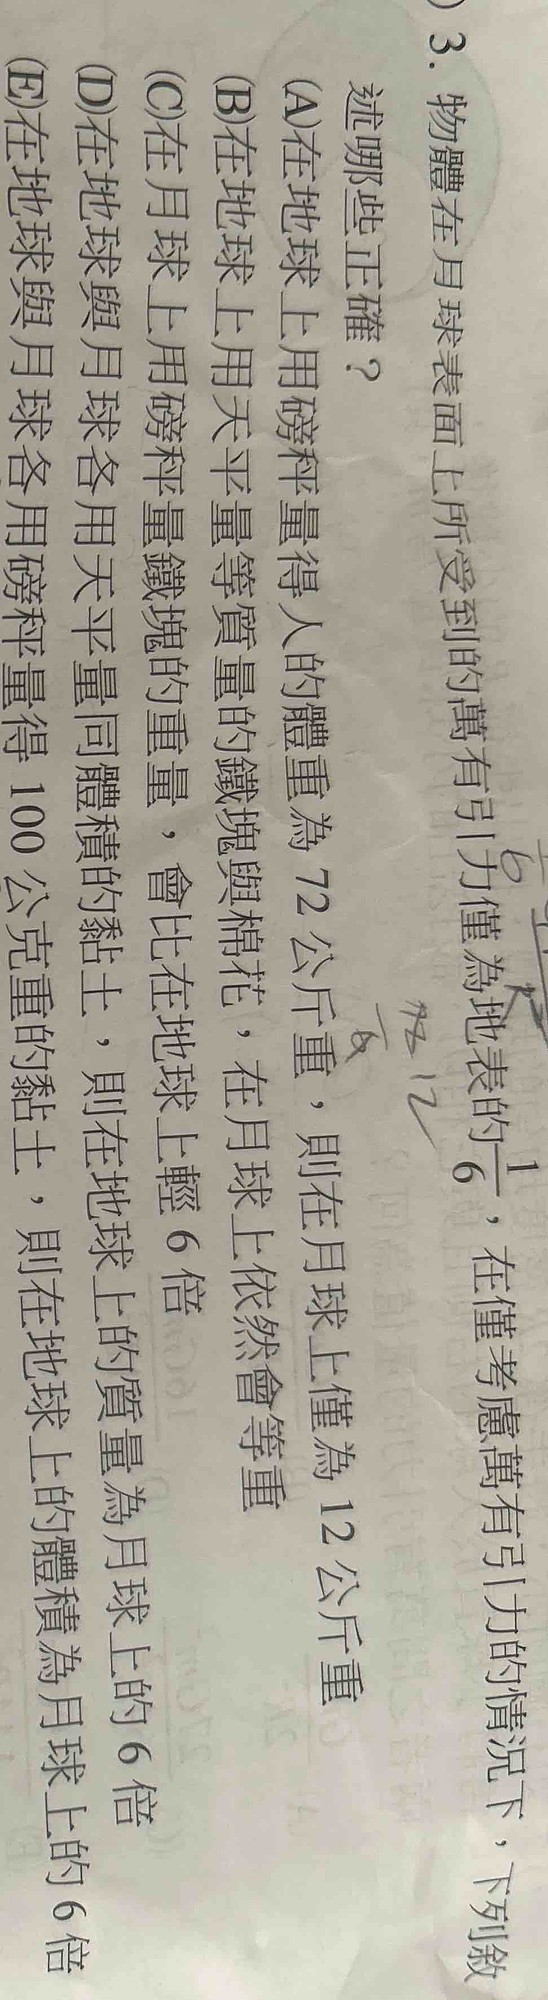 ) 3. 物體在月球表面上所受到的萬有引力僅為地表的1/6，在僅考慮萬有引力的情況下，下列敘
述哪些正確？
72 12
6
(A)在地球上用磅秤量得人的體重為 72 公斤重，則在月球上僅為 12 公斤重
(B)在地球上用天平量等質量的鐵塊與棉花，在月球上依然會等重
(C)在月球上用磅秤量鐵塊的重量，會比在地球上輕 6 倍
(D)在地球與月球各用天平量同體積的黏土，則在地球上的質量為月球上的 6 倍
(E)在地球與月球各用磅秤量得 100 公克重的黏土，則在地球上的體積為月球上的 6 倍